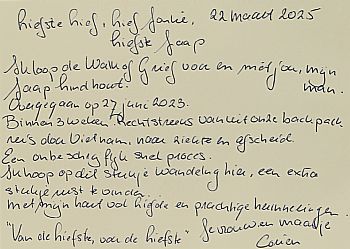 liefste lief, lief Jankie, 22 maart 2025
liefste Jaap
Ik loop de Walk of Grief voor en met jou, mijn
Jaap man.
Overgegaan op 27 juni 2023.
Binnen 3 weken. Rechtstreeks vanuit onze backpack
reis door Vietnam, naar ziekte en afscheid.
Een onbeschrijflijk snel proces.
Ik loop op dit stukje wandeling hier, een extra
stukje rust te vinden...
met mijn hart vol liefde en prachtige herinneringen.
"Van de liefste, voor de liefste" Je vrouw en maatje